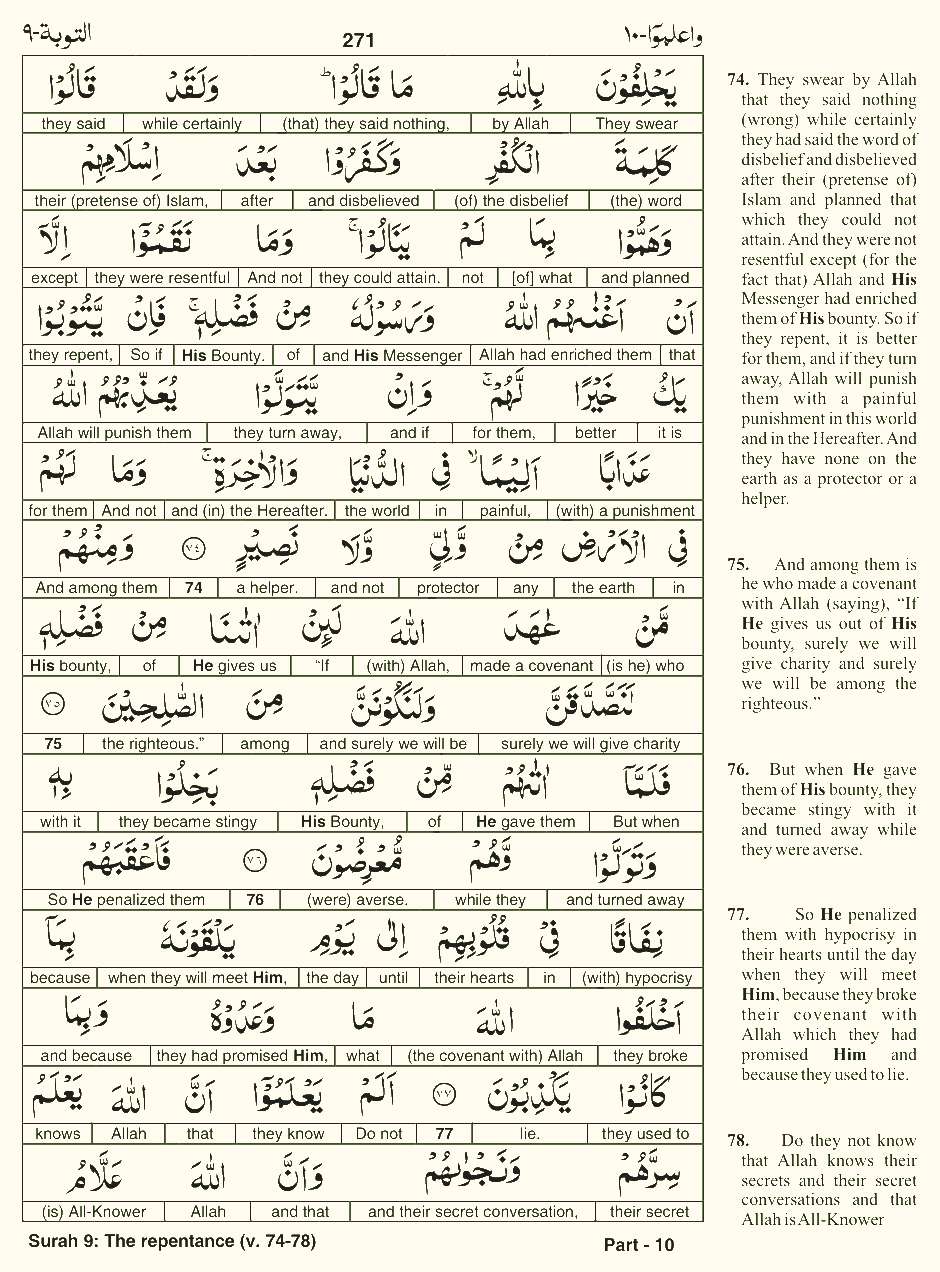 التوبة-٩ 271 واعلموٓا-١٠
يَحْلِفُوْنَ بِاللّٰهِ مَا قَالُوْا ؕ وَلَقَدْ قَالُوْا
they said | while certainly | (that) they said nothing, | by Allah | They swear
كَلِمَةَ الْكُفْرِ وَكَفَرُوْا بَعْدَ اِسْلَامِهِمْ
their (pretense of) Islam, | after | and disbelieved | (of) the disbelief | (the) word
وَهَمُّوْا بِمَا لَمْ يَنَالُوْا ۚ وَمَا نَقَمُوْٓا اِلَّآ
except | they were resentful | And not | they could attain. | not | [of] what | and planned
اَنْ اَغْنٰىهُمُ اللّٰهُ وَرَسُوْلُهٗ مِنْ فَضْلِهٖ ۚ فَاِنْ يَّتُوْبُوْا
they repent, | So if | His Bounty. | of | and His Messenger | Allah had enriched them | that
يَكُ خَيْرًا لَّهُمْ ۚ وَاِنْ يَّتَوَلَّوْا يُعَذِّبْهُمُ اللّٰهُ
Allah will punish them | they turn away, | and if | for them, | better | it is
عَذَابًا اَلِيْمًا ۙ فِى الدُّنْيَا وَالْاٰخِرَةِ ۚ وَمَا لَهُمْ
for them | And not | and (in) the Hereafter. | the world | in | painful, | (with) a punishment
فِى الْاَرْضِ مِنْ وَّلِيٍّ وَّلَا نَصِيْرٍ ۝٧٤ وَمِنْهُمْ
And among them | 74 | a helper. | and not | protector | any | the earth | in
مَّنْ عٰهَدَ اللّٰهَ لَئِنْ اٰتٰىنَا مِنْ فَضْلِهٖ
His bounty, | of | He gives us | “If | (with) Allah, | made a covenant | (is he) who
لَنَصَّدَّقَنَّ وَلَنَكُوْنَنَّ مِنَ الصّٰلِحِيْنَ ۝٧٥
75 | the righteous.” | among | and surely we will be | surely we will give charity
فَلَمَّآ اٰتٰىهُمْ مِّنْ فَضْلِهٖ بَخِلُوْا بِهٖ
with it | they became stingy | His Bounty, | of | He gave them | But when
وَتَوَلَّوْا وَّهُمْ مُّعْرِضُوْنَ ۝٧٦ فَاَعْقَبَهُمْ
So He penalized them | 76 | (were) averse. | while they | and turned away
نِفَاقًا فِيْ قُلُوْبِهِمْ اِلٰى يَوْمِ يَلْقَوْنَهٗ بِمَآ
because | when they will meet Him, | the day | until | their hearts | in | (with) hypocrisy
اَخْلَفُوا اللّٰهَ مَا وَعَدُوْهُ وَبِمَا
and because | they had promised Him, | what | (the covenant with) Allah | they broke
كَانُوْا يَكْذِبُوْنَ ۝٧٧ اَلَمْ يَعْلَمُوْٓا اَنَّ اللّٰهَ يَعْلَمُ
knows | Allah | that | they know | Do not | 77 | lie. | they used to
سِرَّهُمْ وَنَجْوٰىهُمْ وَاَنَّ اللّٰهَ عَلَّامُ
(is) All-Knower | Allah | and that | and their secret conversation, | their secret
74. They swear by Allah
that they said nothing
(wrong) while certainly
they had said the word of
disbelief and disbelieved
after their (pretense of)
Islam and planned that
which they could not
attain. And they were not
resentful except (for the
fact that) Allah and His
Messenger had enriched
them of His bounty. So if
they repent, it is better
for them, and if they turn
away, Allah will punish
them with a painful
punishment in this world
and in the Hereafter. And
they have none on the
earth as a protector or a
helper.
75. And among them is
he who made a covenant
with Allah (saying), “If
He gives us out of His
bounty, surely we will
give charity and surely
we will be among the
righteous.”
76. But when He gave
them of His bounty, they
became stingy with it
and turned away while
they were averse.
77. So He penalized
them with hypocrisy in
their hearts until the day
when they will meet
Him, because they broke
their covenant with
Allah which they had
promised Him and
because they used to lie.
78. Do they not know
that Allah knows their
secrets and their secret
conversations and that
Allah is All-Knower
Surah 9: The repentance (v. 74-78) Part - 10